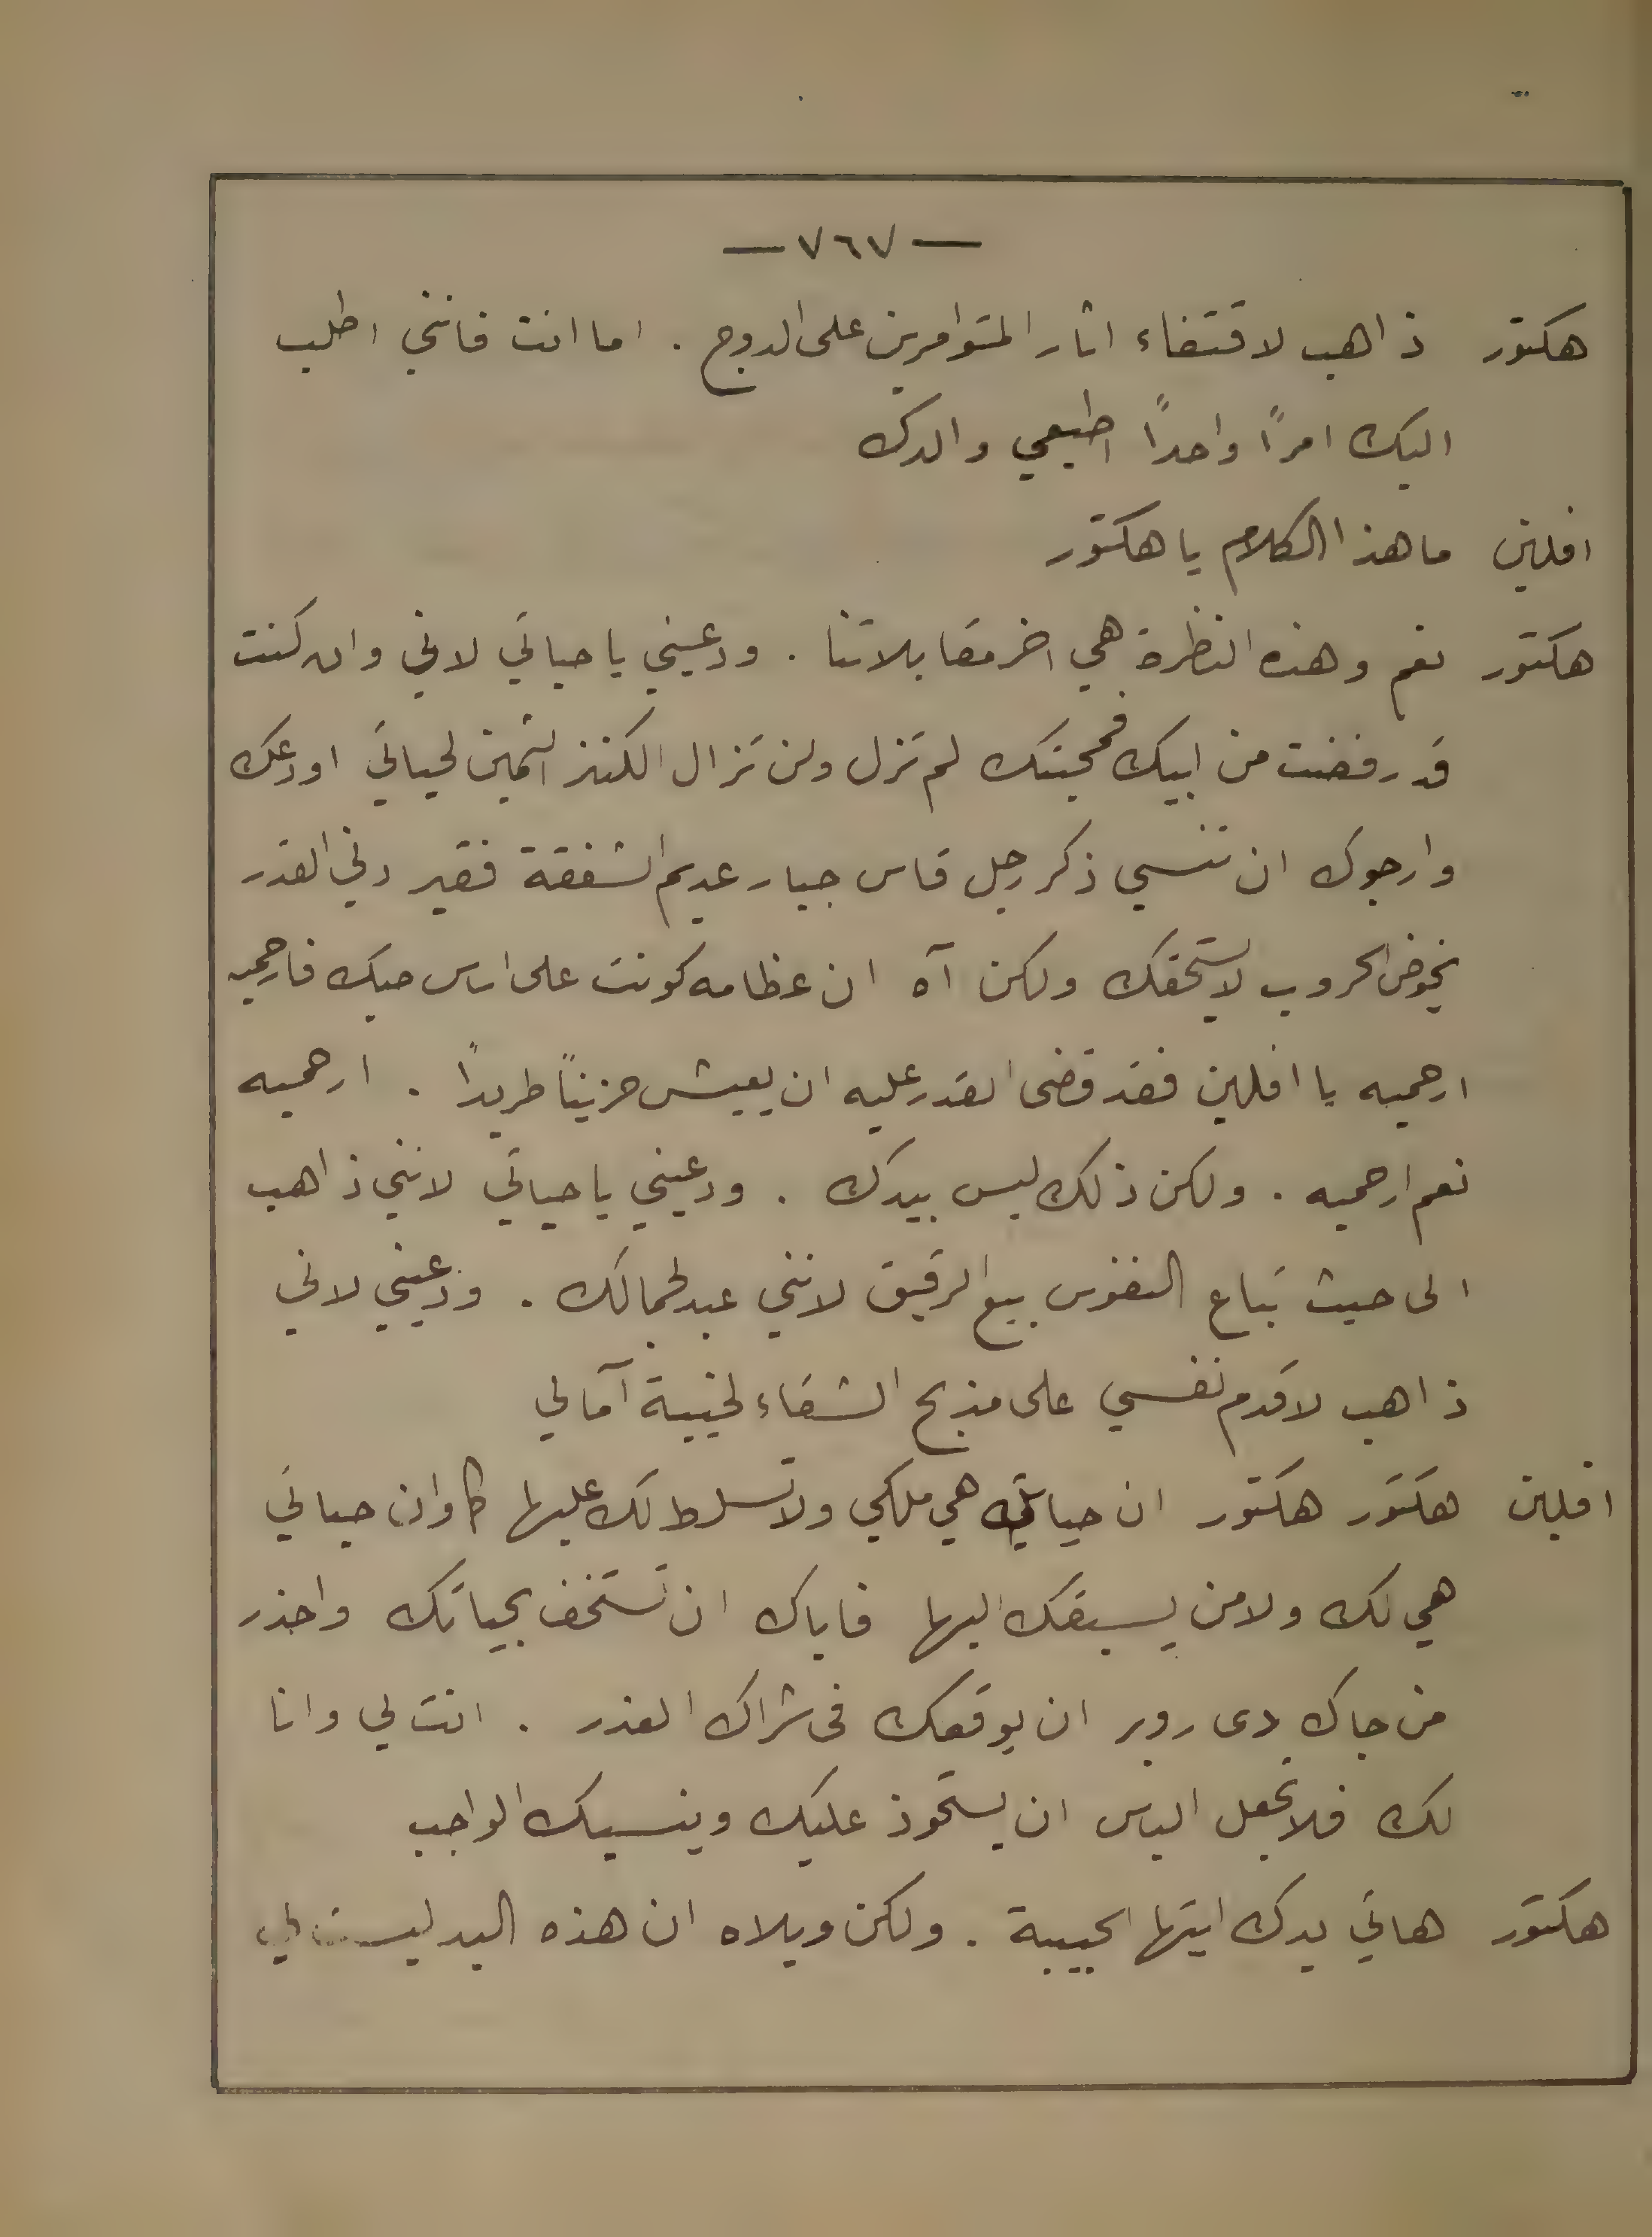 — ٧٦٧ —
هكتور ذاهب لاقتفاء اثار المتوامرين على الدوج . اما انت فانني اطلب
اليك امرًا واحدًا اطيعي والدك
افلين ما هذا الكلام يا هكتور
هكتور نعم وهذه النظرة هي اخر مقابلاتنا . ودعيني يا حياتي لاني وان كنت
قد رفضت من ابيك فمحبتك لم تزل ولن تزال الكنز الثمين لحياتي اودعك
وارجوك ان تنسي ذكر رجل قاس جبار عديم الشفقة فقير دني القدر
يخوض الحروب لا يستحقك ولكن آه ان عظامه كونت على اساس حبك فارحميه
ارحميه يا افلين فقد قضى القدر عليه ان يعيش حزينًا طريدًا . ارحميه
نعم ارحميه . ولكن ذلك ليس بيدك . ودعيني يا حياتي لانني ذاهب
الى حيث تباع النفوس بيع الرقيق لانني عبد لجمالك . ودعيني لاني
ذاهب لاقدم نفسي على مذبح الشقاء لخيبة آمالي
افلين هكتور هكتور ان حياتك هي ملكي ولا تسلط لك عليها كما وان حياتي
هي لك ولا من يسبقك اليها فاياك ان تستخف بحياتك واحذر
من جاك دى روبر ان يوقعك فى شراك الغدر . انت لي وانا
لك فلا تجعل الياس ان يستحوذ عليك وينسيك الواجب
هكتور هاتي يدك ايتها الحبيبة . ولكن ويلاه ان هذه اليد ليست لي